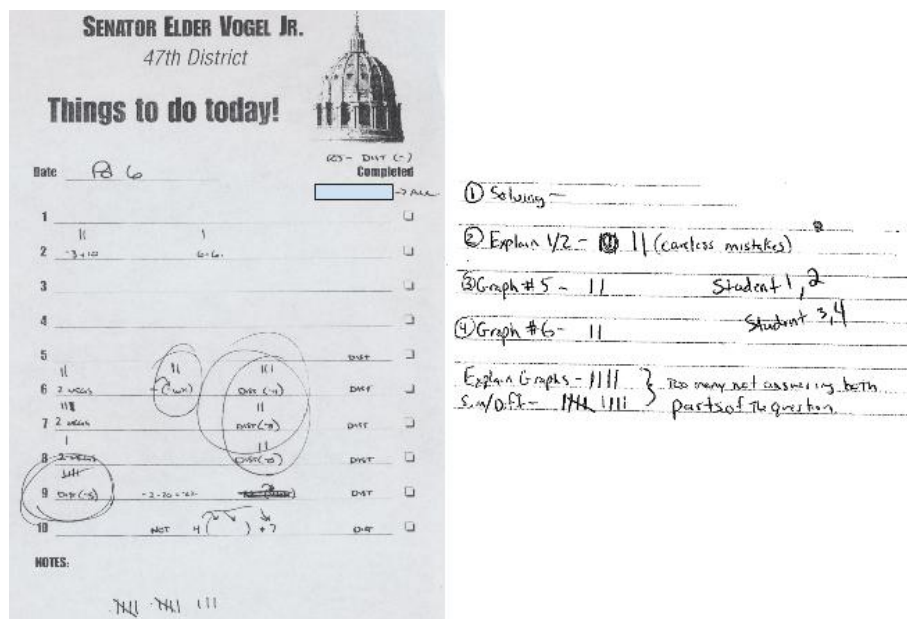 SENATOR ELDER VOGEL JR.
47th District
Things to do today!
DIST (-)
Date Pd 6 Completed
→ ALL
1
2 -3+10 6-6
3
4
5 DIST
6 2 NEGS DIST (-4) DIST
7 2 NEGS DIST (-8) DIST
8 2 NEGS DIST DIST
9 DIST (-5) -2-20=-22 DIST
10 NOT 4( ) + 7 DIST
NOTES:
① Solving -
② Explain 1/2 - || (careless mistakes)
③ Graph #5 - || Student 1, 2
④ Graph #6 - || Student 3, 4
Explain Graphs - |||| } Too many not answering both
Sim/Diff - parts of the question